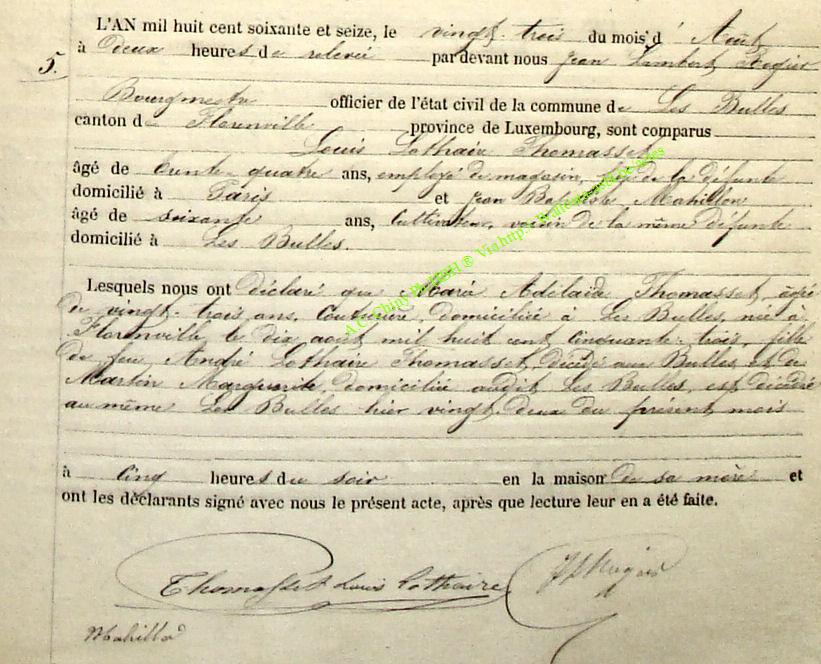 L'AN mil huit cent soixante et seize, le vingt-trois du mois d' Août
5. à deux heures de relevée par devant nous Jean Lambert Rogier
Bourgmestre officier de l'état civil de la commune de Les Bulles
canton de Florenville province de Luxembourg, sont comparus
Louis Lothaire Thomasset
âgé de trente-quatre ans, employé de magasin, de la défunte
domicilié à Paris et Jean Baptiste Mahillon
âgé de soixante ans, Cultivateur, voisin de la même défunte
domicilié à Les Bulles.
Lesquels nous ont déclaré que Maria Adélaïde Thomasset, âgée
de vingt-trois ans, Couturière, domiciliée à Les Bulles, née à
Florenville le dix août mil huit cent cinquante-trois, fille
de feu André Lothaire Thomasset, décédé aux Bulles et de
Martin Marguerite domiciliée audit Les Bulles, est décédée
au même Les Bulles hier vingt-deux du présent mois
à cinq heures du soir en la maison de sa mère et
ont les déclarants signé avec nous le présent acte, après que lecture leur en a été faite.
Thomasset Louis Lothaire JLRogier
Mahillon
A.C. Chiny